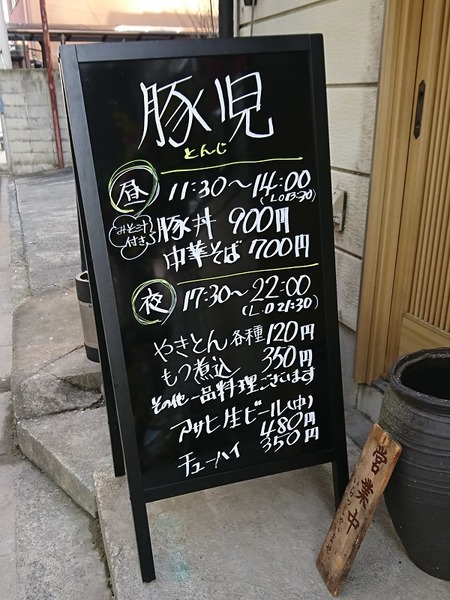 豚児
とんじ
昼 11:30～14:00
(L.O13:30)
みそ汁付き 豚丼 900円
中華そば 700円
夜 17:30～22:00
(L.O 21:30)
やきとん各種120円
もつ煮込 350円
その他一品料理ございます
アサヒ生ビール(中)
480円
チューハイ 350円
営業中